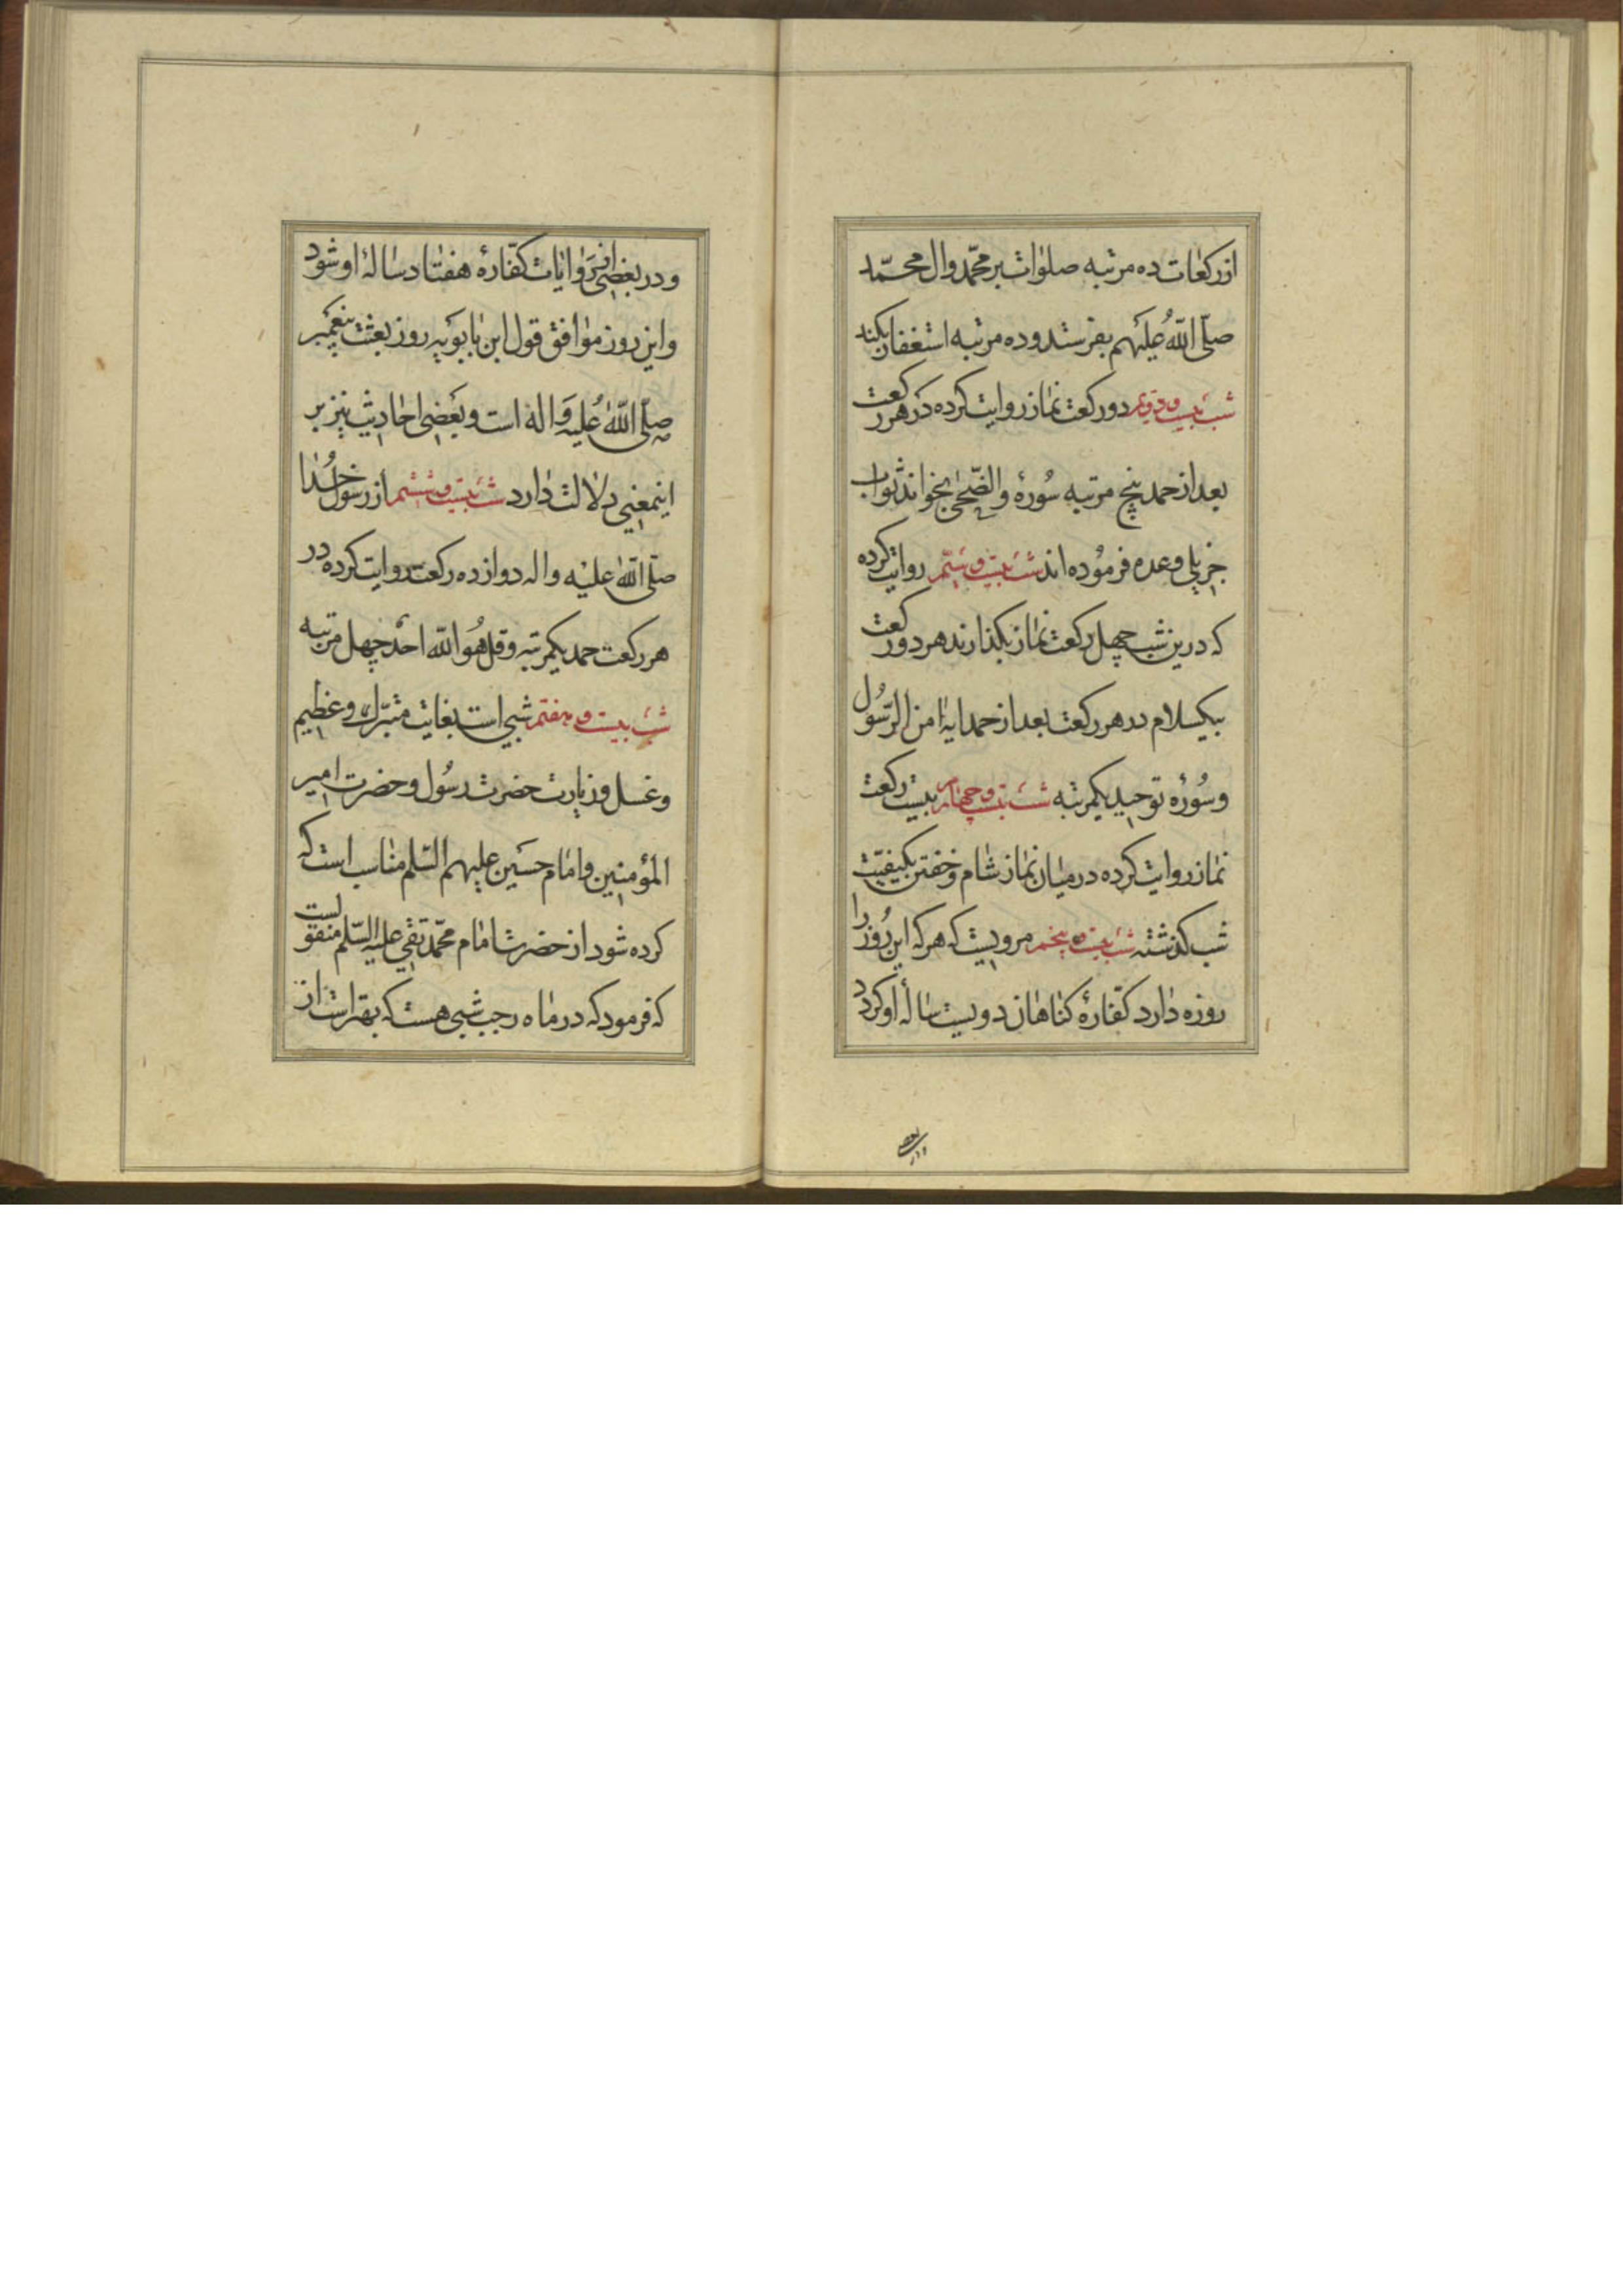 از رکعات ده مرتبه صلوات بر محمّد وال محمّد
صلّی اللّه علیهم بفرستد و ده مرتبه استغفار بکند
شب بیست و دویم دو رکعت نماز روایت کرده در هر رکعت
بعد از حمد پنج مرتبه سُورهٔ والضّحی بخواند ثواب
جزیلی وعده فرمُوده اند شب بیست و سیّم روایت کرده
که درین شب چهل رکعت نماز بکذارند هر دو رکعت
بیکسلام در هر رکعت بعد از حمد ایهٔ امن الرّسُول
و سُورهٔ توحید یکمرتبه شب بیست و چهارم بیست رکعت
نماز روایت کرده در میان نماز شام و خفتن بکیفیّت
شب کذشته شب بیست و پنجم مرویست که هر که این رُوز را
روزه دارد کفّارهٔ کناهان دویست سالهٔ او کردد
ودر بعضی از روایات کفّارهٔ هفتاد سالهٔ او شود
واین روز موافق قول ابن بابویه روز بعثت پیغمبر
صلّی اللّه علیه وَاله است و بعضی احادیث نیز بر
اینمعنی دلالت دارد شب بیست و ششم از رسول خُدا
صلّی اللّه علیه واله دوازده رکعت روایت کرده در
هر رکعت حمد یکمرتبه و قل هُو اللّه احد چهل مرتبه
شب بیست و هفتم شبی است بغایت متبرّک و عظیم
وغسل و زیارت حضرت رسُول و حضرت امیر
المؤمنین و امام حسین علیهم السّلم مناسب است که
کرده شود از حضرت امام محمّد تقی علیه السّلم منقولست
که فرمود که در ماه رجب شبی هست که بهتر است از